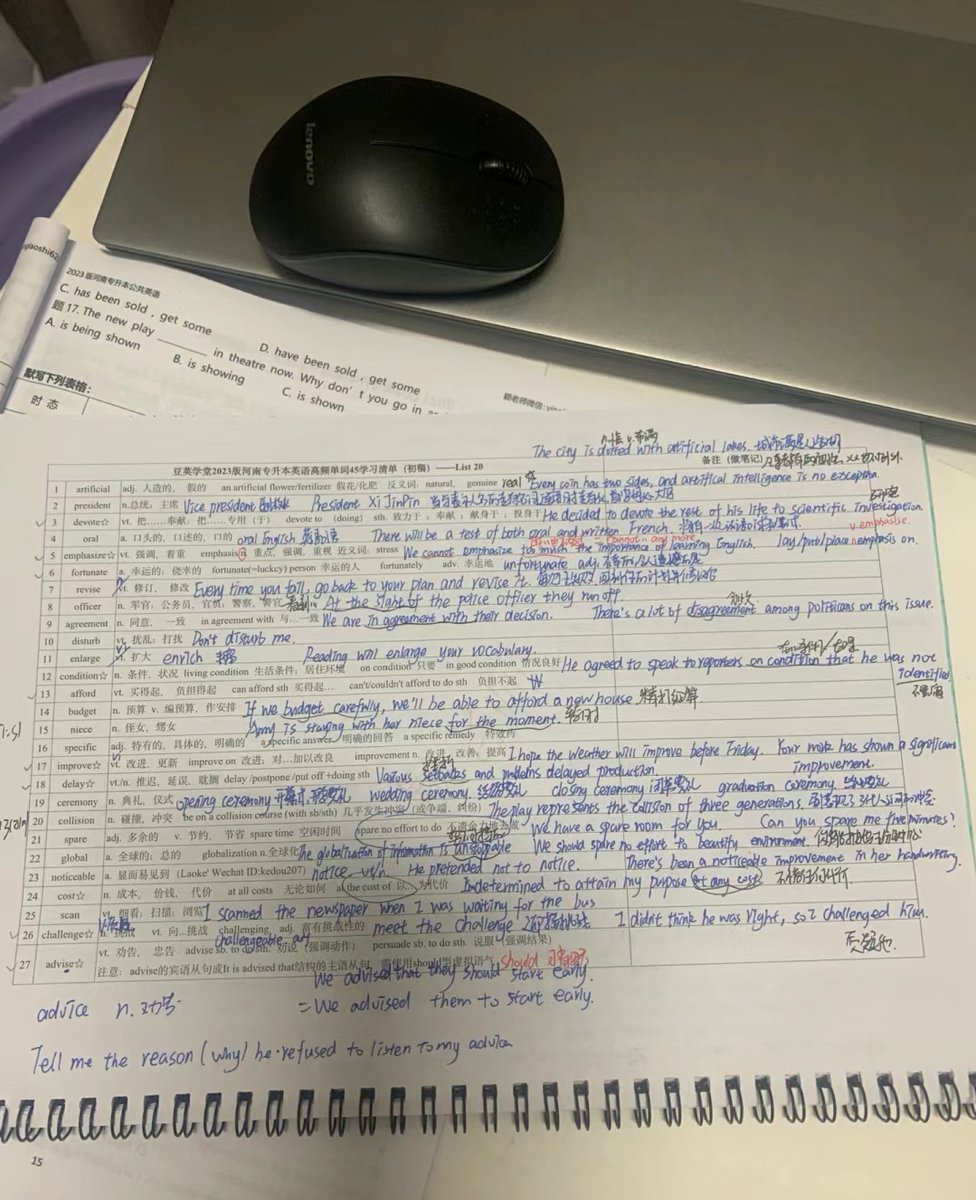 lenovo
qiaoshi62
2023版河南专升本公共英语
C. has been sold，get some
D. have been sold，get some
题 17. The new play ______ in theatre now. Why don't you go in
A. is being shown
B. is showing
C. is shown
默写下列表格：
时 态
The city is dotted with artificial lakes.
豆荚学堂2023版河南专升本英语高频单词45学习清单（初稿）——List 20
备注（做笔记）
1 artificial adj. 人造的， 假的 an artificial flower/fertilizer 假花/化肥 反义词：natural, genuine real Every coin has two sides, and artifical intelligence is no exception.
2 president n.总统；主席 Vice president 副 President Xi JinPin
3 devote☆ vt. 把……奉献；把……专用（于） devote to (doing) sth. 致力于，奉献，献身于，投身于 He decided to devote the rest of his life to scientific investigation.
4 oral a. 口头的，口述的，口的 oral English 英语口语 There will be a test of both oral and written French.
v. emphasise.
5 emphasize☆ vt. 强调，着重 emphasis n. 重点，强调，重视 近义词：stress We cannot emphasize too much the importance of learning English. lay/put/place emphasis on.
6 fortunate a. 幸运的；侥幸的 fortunate(=lucky) person 幸运的人 fortunately adv. 幸运地 unfortunate adj.
7 revise vt. 修订， 修改 Every time you fail, go back to your plan and revice it.
8 officer n. 军官；公务员，官员；警察，警官 At the sight of the police officer they run off.
9 agreement n. 同意， 一致 in agreement with 与…一致 We are in agreement with their decision. There's a lot of disagreement among politicans on this issue.
10 disturb vt. 扰乱；打扰 Don't disturb me.
11 enlarge vt. 扩大 enrich Reading will enlarge your vocabulary.
12 condition☆ n. 条件，状况 living condition 生活条件；居住环境 on condition 只要 in good condition 情况良好 He agreed to speak to reporters on condition that he was not
identified
13 afford vt. 买得起， 负担得起 can afford sth 买得起… can't/couldn't afford to do sth 负担不起
14 budget n. 预算 v. 编预算，作安排 If we budget carefully, we'll be able to afford a new house.
15 niece n. 侄女，甥女 Amy is staying with her niece for the moment. 暂时
16 specific adj. 特有的，具体的，明确的 a specific answer 明确的回答 a specific remedy 特效药
17 improve☆ vt. 改进，更新 improve on 改进；对…加以改良 improvement n. 改进，改善；提高 I hope the weather will improve before Friday. Your work has shown a significant
improvement.
18 delay☆ vt./n. 推迟，延误，耽搁 delay /postpone/put off +doing sth Various setbacks and problems delayed production.
19 ceremony n. 典礼，仪式 opening ceremony wedding ceremony closing ceremony graduation ceremony
20 collision n. 碰撞，冲突 be on a collision course (with sb/sth) 几乎发生冲突（或争端、纠纷） The play represents the collision of three generations.
21 spare adj. 多余的 v. 节约， 节省 spare time 空闲时间 spare no effort to do 不遗余力地去做 We have a spare room for you. Can you spare me five minutes?
22 global a. 全球的；总的 globalization n.全球化 The globalization of information is unstoppable We should spare no effort to beautify environment.
23 noticeable a. 显而易见到 (Laoke' Wechat ID:kedou207) notice vt/n. He pretended not to notice. There's been a noticeable improvement in her handwriting.
24 cost☆ n. 成本， 价钱， 代价 at all costs 无论如何 at the cost of 以…为代价 Indetermined to attain my purpose at any cost.
25 scan vt. 细看；扫描；浏览 I scanned the newspaper when I was waiting for the bus
26 challenge☆ n. 挑战 vt. 向…挑战 challenging adj. 富有挑战性的 meet the challenge I didn't think he was right, so I challenged him.
challengeable
27 advise☆ vt. 劝告， 忠告 advise sb. to do sth. 劝说（强调动作） persuade sb. to do sth. 说服（强调结果）
注意：advise的宾语从句或It is advised that结构的主语从句，需使用should型虚拟语气 should 可省略
We advised that they should start early.
advice n. 劝告
= We advised them to start early.
Tell me the reason (why) he refused to listen to my advice
15